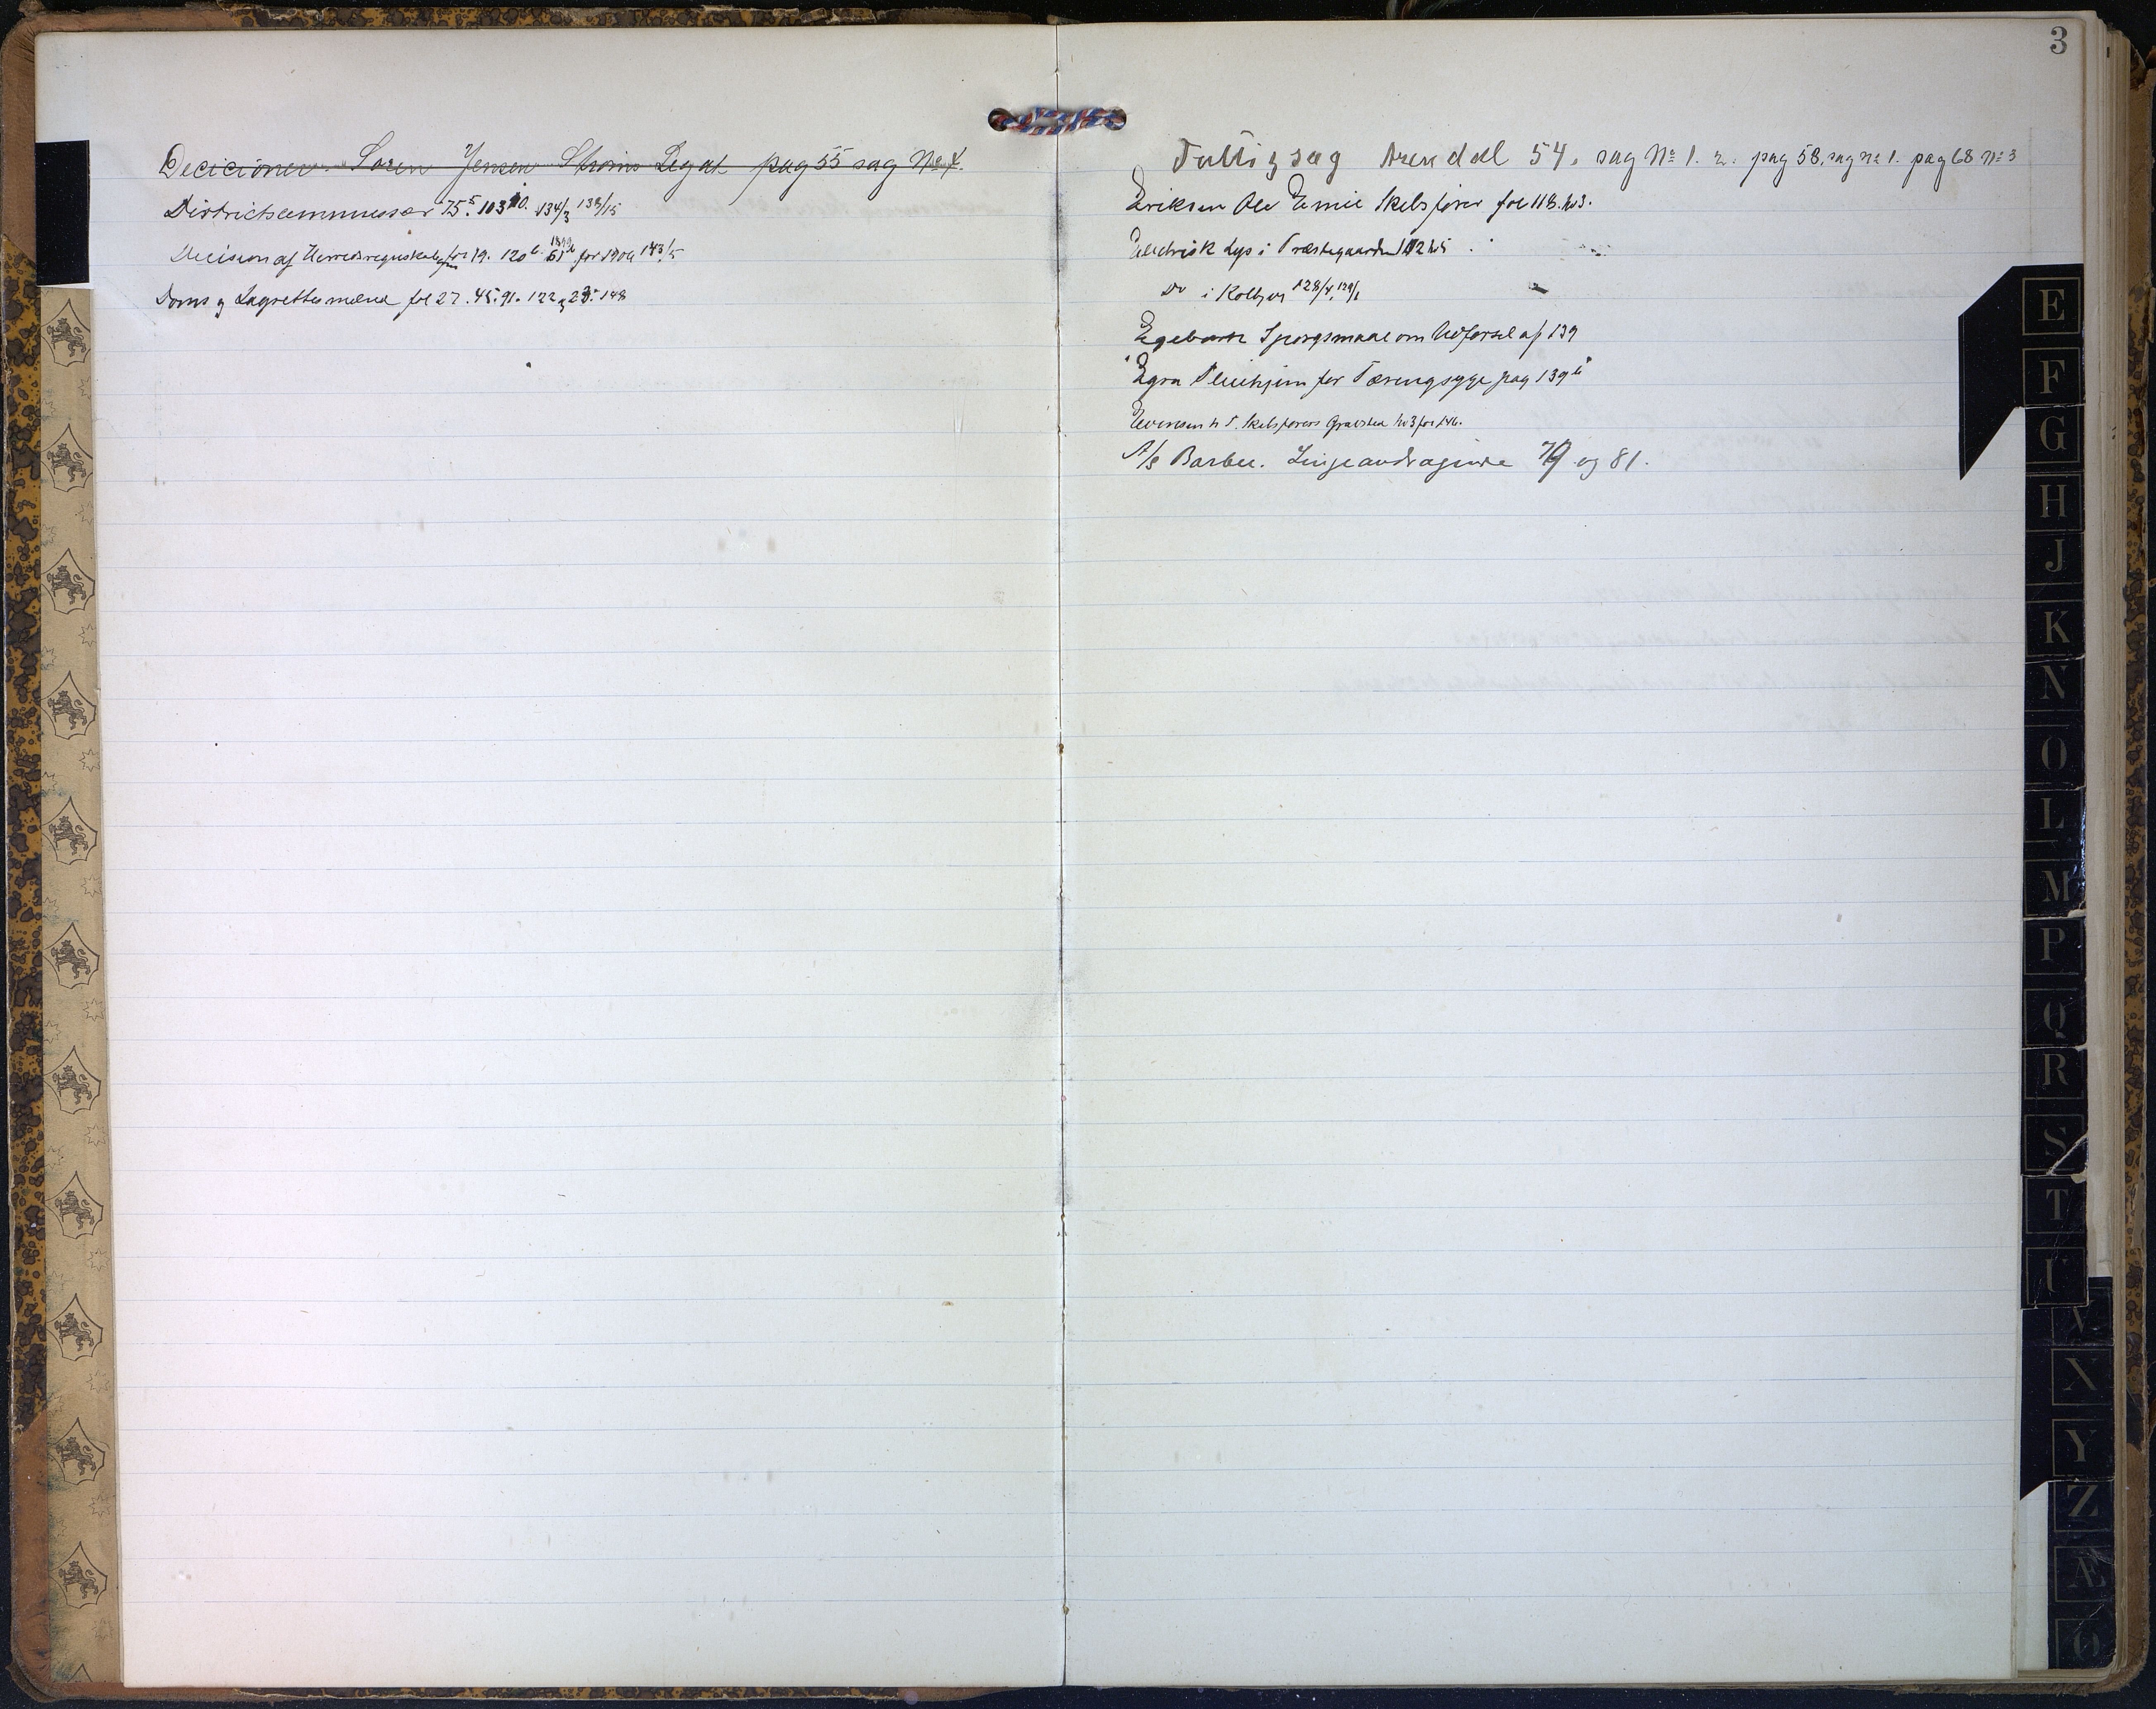 Decicioner. Søren Jensen Strøms Legat pag 55 sag No 4.
Districtscommissær 75⁵. 103 10. 134/3 138/15
Decision af Herredsregnskab for 19. 120 for 1909 143/5
Doms og Lagrettesmænd fol 27. 45. 91. 122 148
3
Fattigsag Arendal 54. sag No 1. 2. pag 58. sag No 1. pag 68 No 3
Eriksen Ole Emil Skibsfører fol 118. No 3.
Electrisk Lys i Præstegaarden 112 No 5
Do i Kolbjør 128/4, 129/1
Egebark Spørgsmaal om Udførsel af 139
Egra Pleiehjem for Tæringsyge pag 139
Evensen Skibsførers Gravsted No 3 fol 146.
A/S Barbu. Linjeandragende 79 og 81.
E
F
G
H
J
K
N
O
L
M
P
Q
R
S
T
U
V
X
Y
Z
Æ
Ø